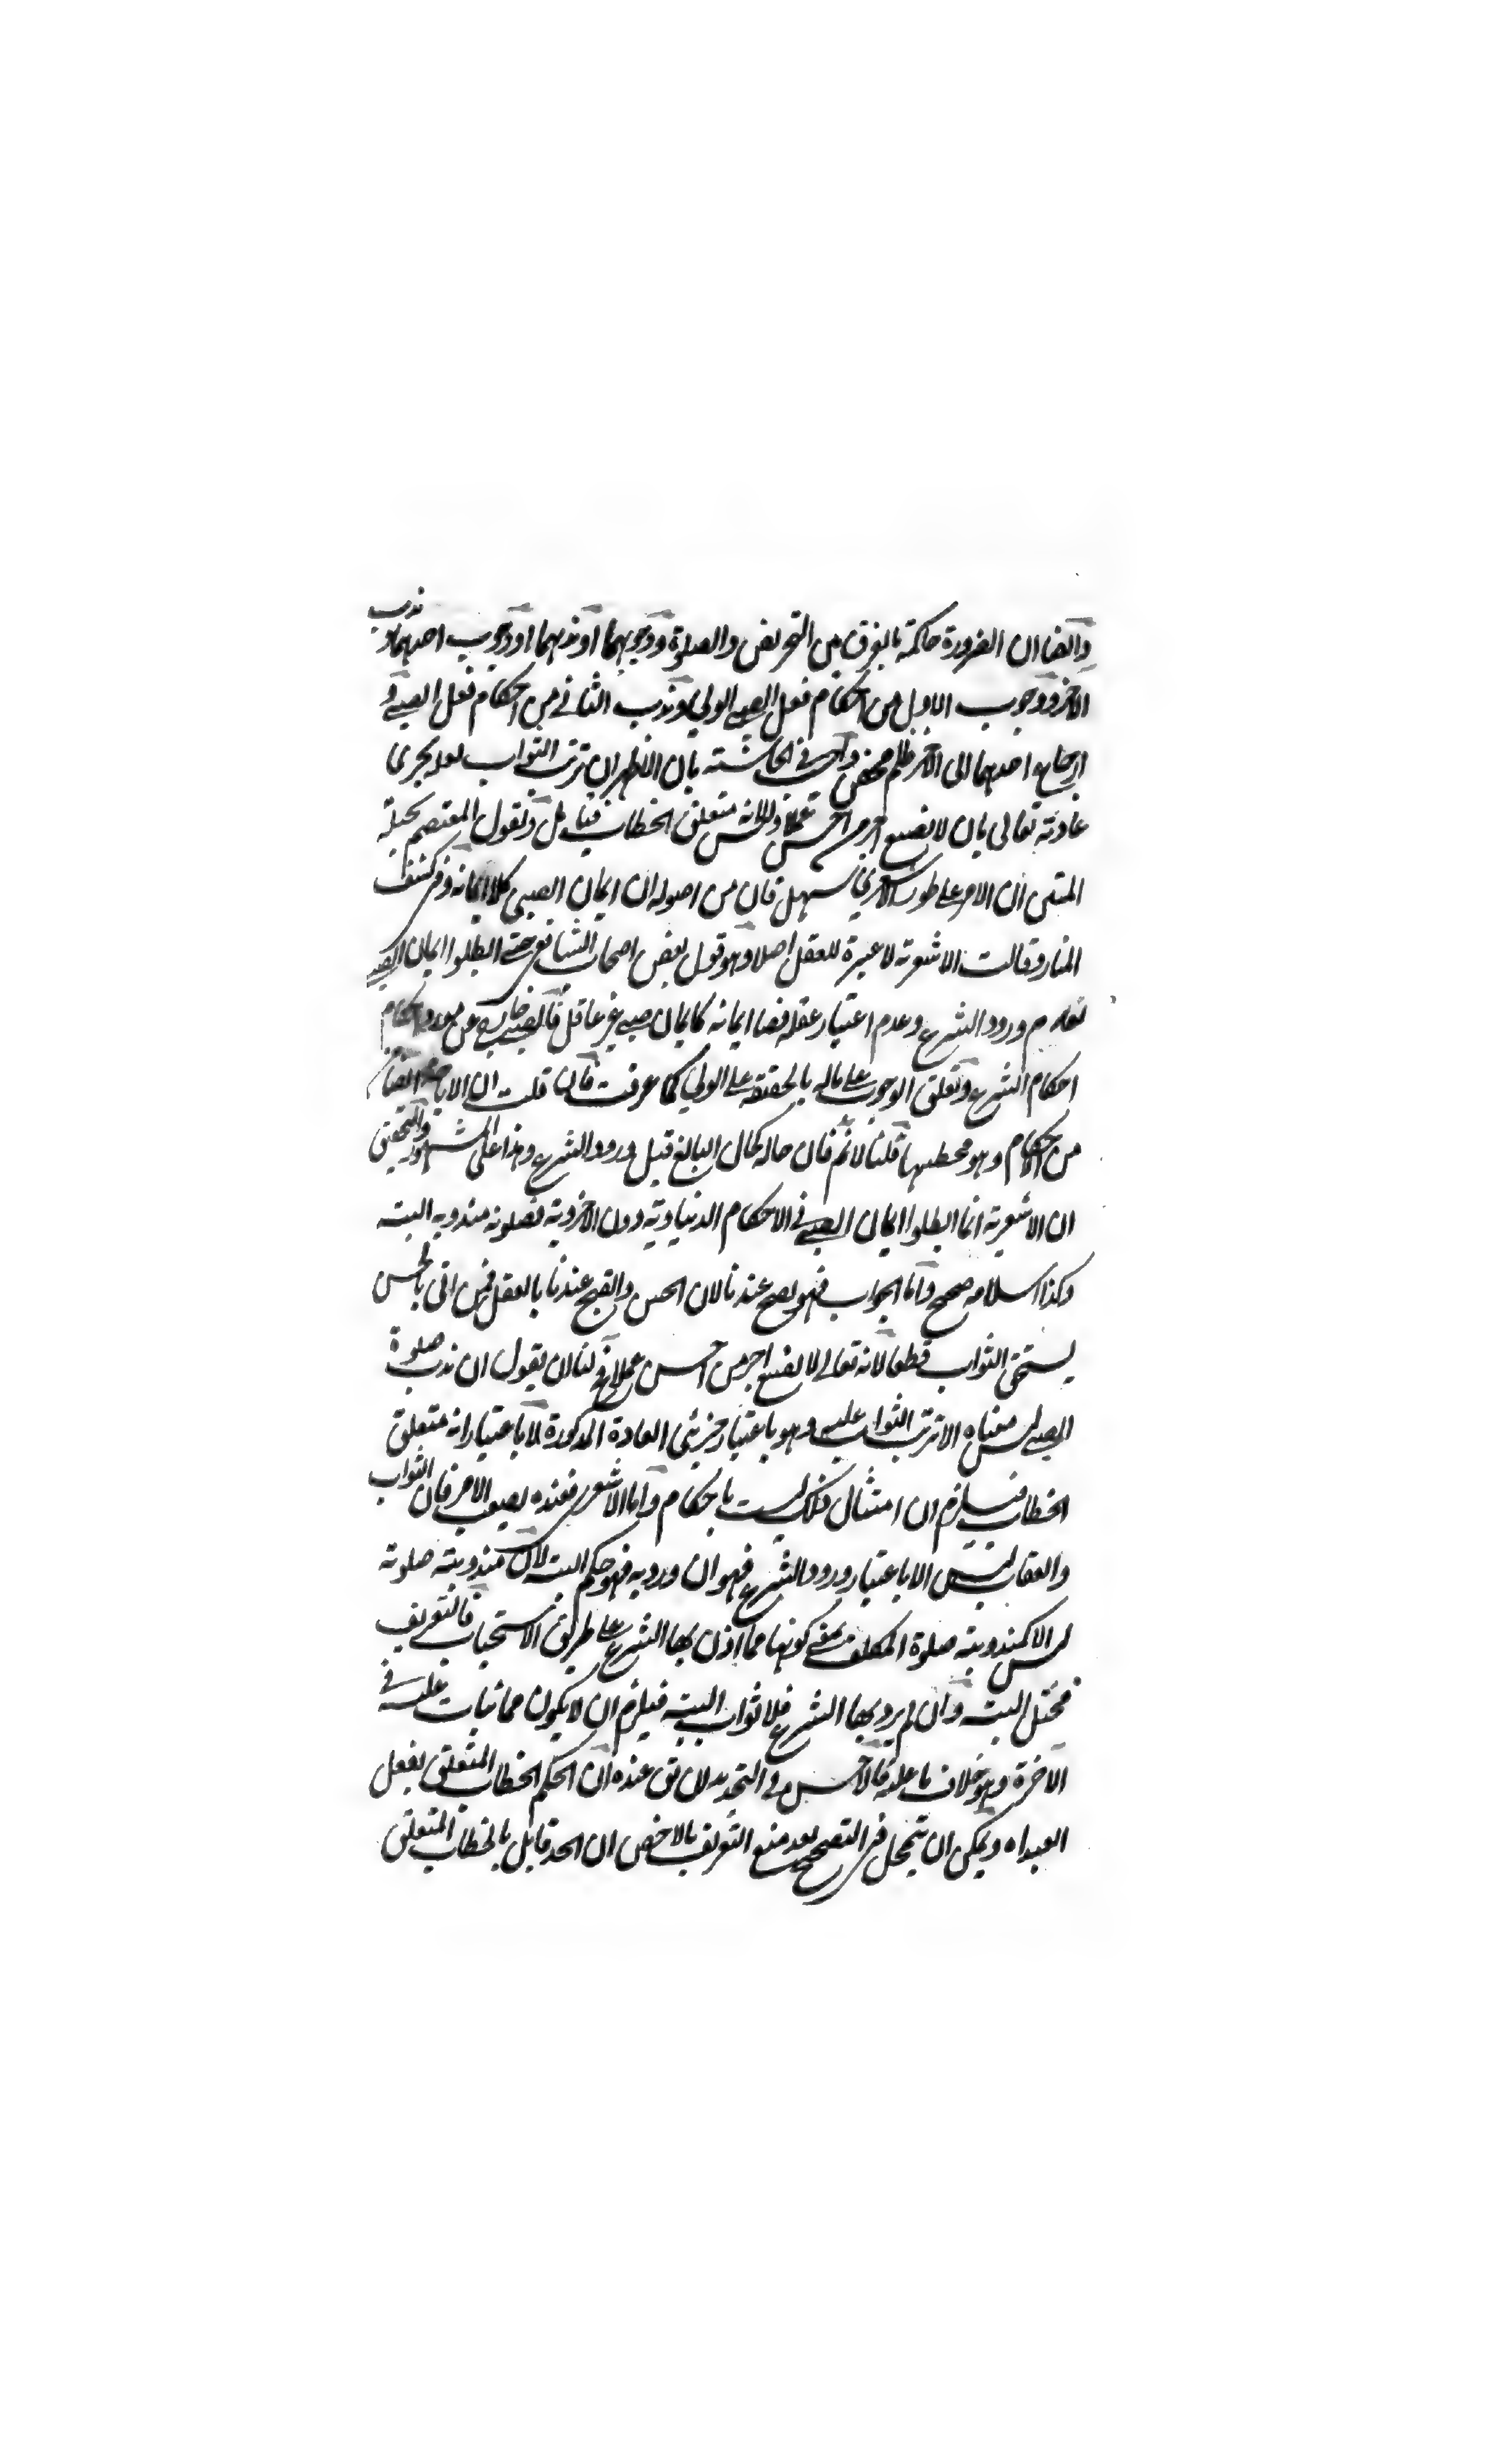 وايضا ان الضرورة حاكمة بالفرق بين التحريض والصلوة ووجوبهما او ندبهما او وجوب احدهما و ندب
الاخر ووجوب الاول من احكام فعل الصبي الولي وندب الثاني من احكام فعل الصبي و
ارجاع احدهما الى الاخر ظلم محض في الحاشية بان الاظهر ان ترتب الثواب لعله يجري
عادته تعالى بان لا نضيع اجر من احسن عملا لانه متعلق الخطاب فتامل ونقول المعتصم بحبله
المتين ان الامر على طور الاشعري سهل فان من اصوله ان ايمان الصبي كلا ايمانه وفي كشف
المنار وقالت الاشعرية لا عبرة للعقل اصلا وهو قول بعض اصحاب الشافعي حتى ابطلوا ايمان الصبي
لعدم ورود الشرع وعدم اعتبار عقله فصار ايمانه كايمان صبي غير عاقل فالصبي خارج عن مورد احكام
احكام الشرع وتعلق الوجوب على ماله بالحقيقة على الولي كما عرفت فان قلت ان الاباحة ايضا
من الاحكام وهو محطبها قلنا لا ثم فان حاله كحال البالغ قبل ورود الشرع وهذا على المشهور والتحقيق
ان الاشعرية انما ابطلوا ايمان الصبي في الاحكام الدنياوية دون الاخروية فصلوته مندوبة البتة
وكذا اسلامه صحيح واما الجواب فهو يصح عندنا لان الحسن والقبح عندنا بالعقل فمن اتى بالحسن
يستحق الثواب قطعا لانه تعالى لا يضيع اجر من احسن عملا فح لنا ان يقول ان ندب صلوة
الصبي ليس معناه الا ترتب الثواب عليه وهو باعتبار جزئي العادة المذكورة لا باعتبار انه متعلق
الخطاب فيلزم ان امتثال ذلك ليست باحكام واما الاشعري فعنده يصعب الامر فان الثواب
والعقاب ليس الا باعتبار ورود الشرع فهو ان ورد به فهو حكم البتة لان مندوبية صلوته
ليس الا كمندوبية صلوة المكلف بمعنى كونها مما اذن بها الشرع على طريق الاستحباب فالتعريف
مختل البتة وان لم يرد بها الشرع فلا ثواب البتة فيلزم ان لا يكون مما يثاب عليه في
الاخرة وهو خلاف ما عليه فالاحسن في التحديد لان يق عنده ان الحكم الخطاب المتعلق بفعل
العبد اه ويمكن ان يتمحل في التصحيح بعد منع التعريف بالاخص ان الحد قابل بالخطاب المتعلق